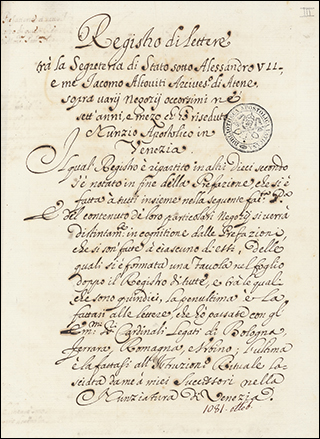 III
Registro di lettere
trà la Segreteria di Stato sotto Alessandro VII.
e me Jacomo Altoviti Arcives.º di Atene
sopra varij Negozij occorsimi nè
sett'anni, e mezo, ch'hò riseduto
Nunzio Apostolico in
Venezia.
Il qual Registro è ripartito in altri Dieci secondo
s'è notato in fine della Prefazione, che si è
fatta a tutti insieme nella seguente
E del contenuto de loro particolari Negozij si verrà
distintam. in cognitione dalle Prefazioni,
che si son fatte à ciascuno di essi, Delle
quali si è formata una Tavola nel foglio
doppo il Registro di tutte, e trà le qual
che sono quindici, la penultima è la
fattasi alle lettere, che hò passate con gl'
Em.mi Sri Cardinali Legati di Bologna,
Ferrara, Romagna, e Urbino; e l'ultima
è la fattasi all'Istruzioni Rituale la-
sciata da me à miei Successori nella
Nunziatura di Venezia.
1081